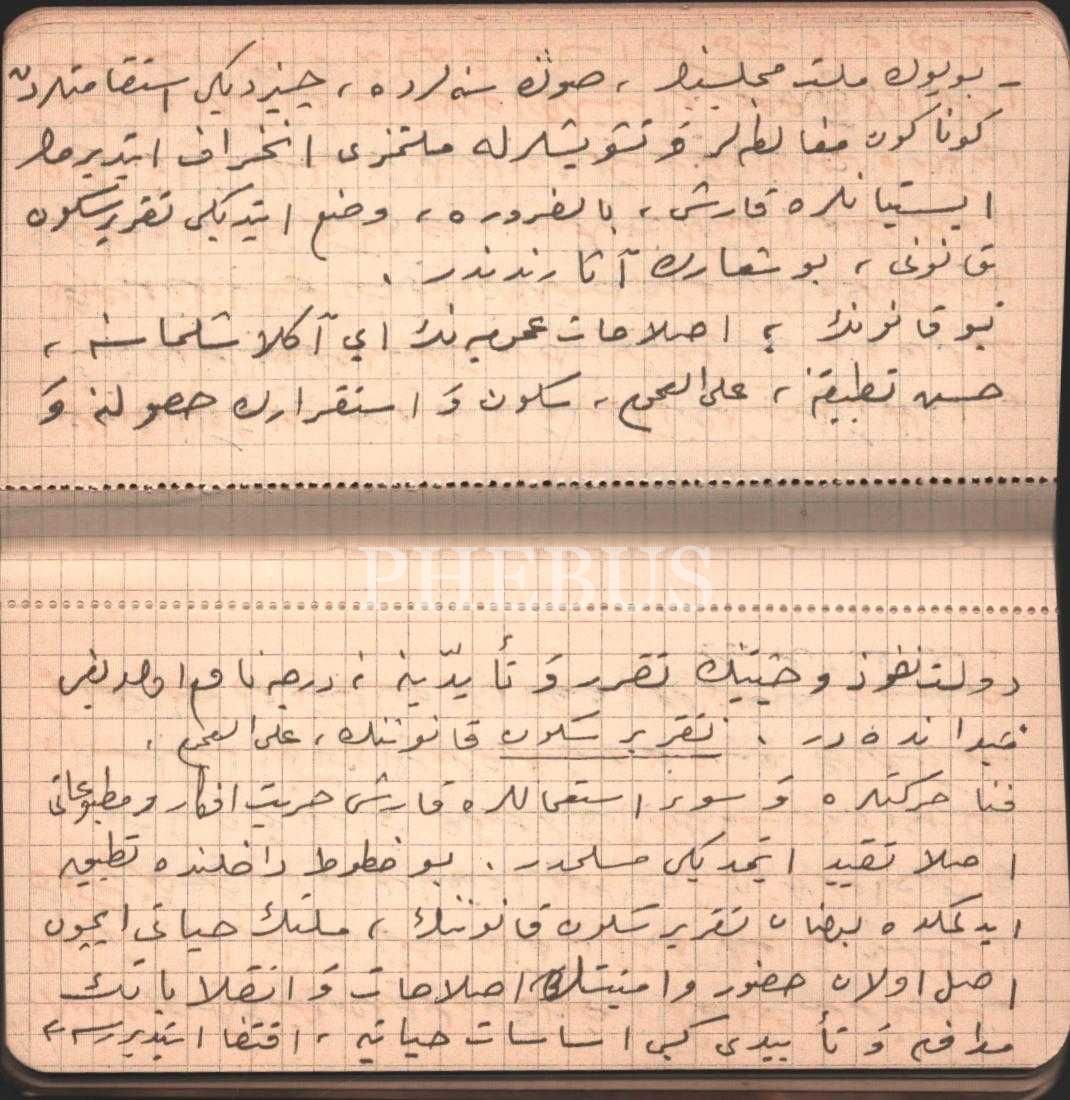 ـ بويوك ملت مجلسنك ، صوڭ سنه‌لرده ، چيزديكى استقامتلردن
كوناكون مغالطه‌لر و تشويشلر له ملتمزى انحراف ايتديرمك
ايستيانلره قارشى ، بالضروره ، وضع ايتديكى تقرير سكون
قانونى ، بو شعارك آثارندندر .
بو قانونك ؛ اصلاحات عموميه‌نك اي آكلاشلماسنه ،
حسن تطبيقنه ، على العموم ، سكون و استقرارك حصولنه و
دولت نفوذ و حيثيتنك تقرر و تأييدينه نه درجه نافع اولديغى
ميدانده در . تقرير سكون قانوننك ، على العموم ،
فنا حركتلره و سوء استعماللره قارشى حريت افكار و مطبوعاتى
اصلا تقييد ايتمديكى مسلمدر . بو خطوط داخلنده تطبيق
ايدلمكده بولنان تقرير سكون قانوننك ، ملتك حياتى ايچون
اصل اولان حضور و امنيتله اصلاحات و انقلاباتك
مدافعه و تأييدى كبى اساسات حياتيه ، اقتضا ايتديررسه
PHEBUS